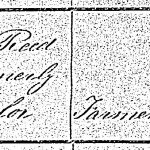 Reed
merly
lor
Farmer